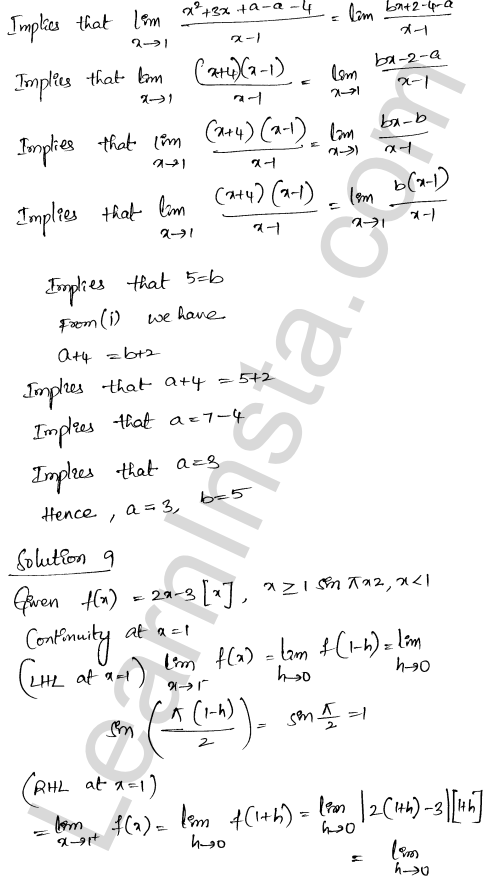 Implies that lim x→1 x²+3x+a-a-4 / x-1 = lim bx+2-4-a / x-1
Implies that lim x→1 (x+4)(x-1) / x-1 = lim x→1 bx-2-a / x-1
Implies that lim x→1 (x+4)(x-1) / x-1 = lim x→1 bx-b / x-1
Implies that lim x→1 (x+4)(x-1) / x-1 = lim x→1 b(x-1) / x-1
Implies that 5=b
From (i) we have
a+4 = b+2
Implies that a+4 = 5+2
Implies that a=7-4
Implies that a=3
Hence, a=3, b=5
Solution 9
Given f(x) = 2x-3[x], x≥1 sin πx2, x<1
Continuity at x=1
(LHL at x=1) lim x→1⁻ f(x) = lim h→0 f(1-h) = lim h→0
sin (π(1-h) / 2) = sin π/2 = 1
(RHL at x=1)
= lim x→1⁺ f(x) = lim h→0 f(1+h) = lim h→0 |2(1+h)-3|[1+h]
= lim h→0
LearnInsta.com